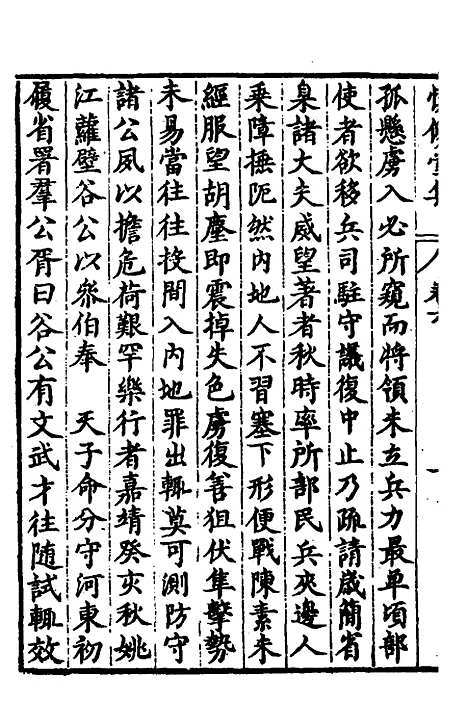 孤懸虜入必所窺而將領未立兵力最單頃部
使者欲移兵司駐守議復中止乃疏請歲簡省
臬諸大夫威望著者秋時率所部民兵夾邊人
乘障撫阨然內地人不習塞下形便戰陳素未
經服望胡塵即震掉失色虜復善狙伏隼擊勢
未易當往往投間入內地罪出輒莫可測防守
諸公夙以擔危荷艱罕樂行者嘉靖癸亥秋姚
江蘿壁谷公以叅伯奉　天子命分守河東初
履省署羣公胥曰谷公有文武才往随試輒效